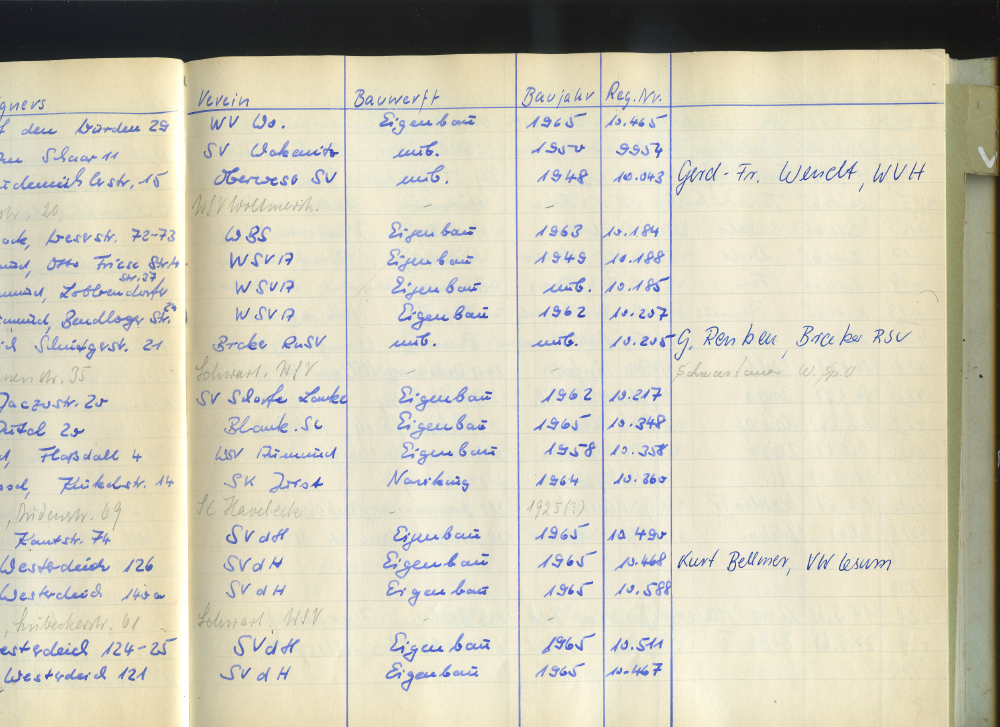 igners Verein Bauwerft Baujahr Reg.Nr.
f den Wurden 29 WV Wo. Eigenbau 1965 10.465
Schaar 11 SV Wakenitz unb. 1950 9954
str. 15 Oberweser SV unb. 1948 10.043 Gerd-Fr. Wendt, WVH
str. 20 WSV Woltmersh. - -
Weserstr. 72-73 WBS Eigenbau 1963 10.184
Otto Friese Str. WSVA Eigenbau 1949 10.188
Lobbendorfer Str. 27 WSVA Eigenbau unb. 10.185
Str. 24 WSVA Eigenbau 1962 10.207
Schützestr. 21 Braker RuSV unb. unb. 10.205 G. Renken, Braker RSV
str. 35 Schwart. WSV - - Schwartauer W. Sp. V
Jaczostr. 20 SV Scharfe Lanke Eigenbau 1962 10.217
20 Blank. SC Eigenbau 1965 10.348
4 WSV Aumund Eigenbau 1958 10.358
str. 14 SK 1964 10.360
str. 69 SC Haveleck 1925(?)
Kantstr. 74 SVdH Eigenbau 1965 10.490
Westerdeich 126 SVdH Eigenbau 1965 10.468 Kurt Bellmer, VW Lesum
Westerdeich 140a SVdH Eigenbau 1965 10.588
Lübeckerstr. 61 Schwart. WSV - -
esterdeich 124-25 SVdH Eigenbau 1965 10.511
Westerdeich 121 SVdH Eigenbau 1965 10.467